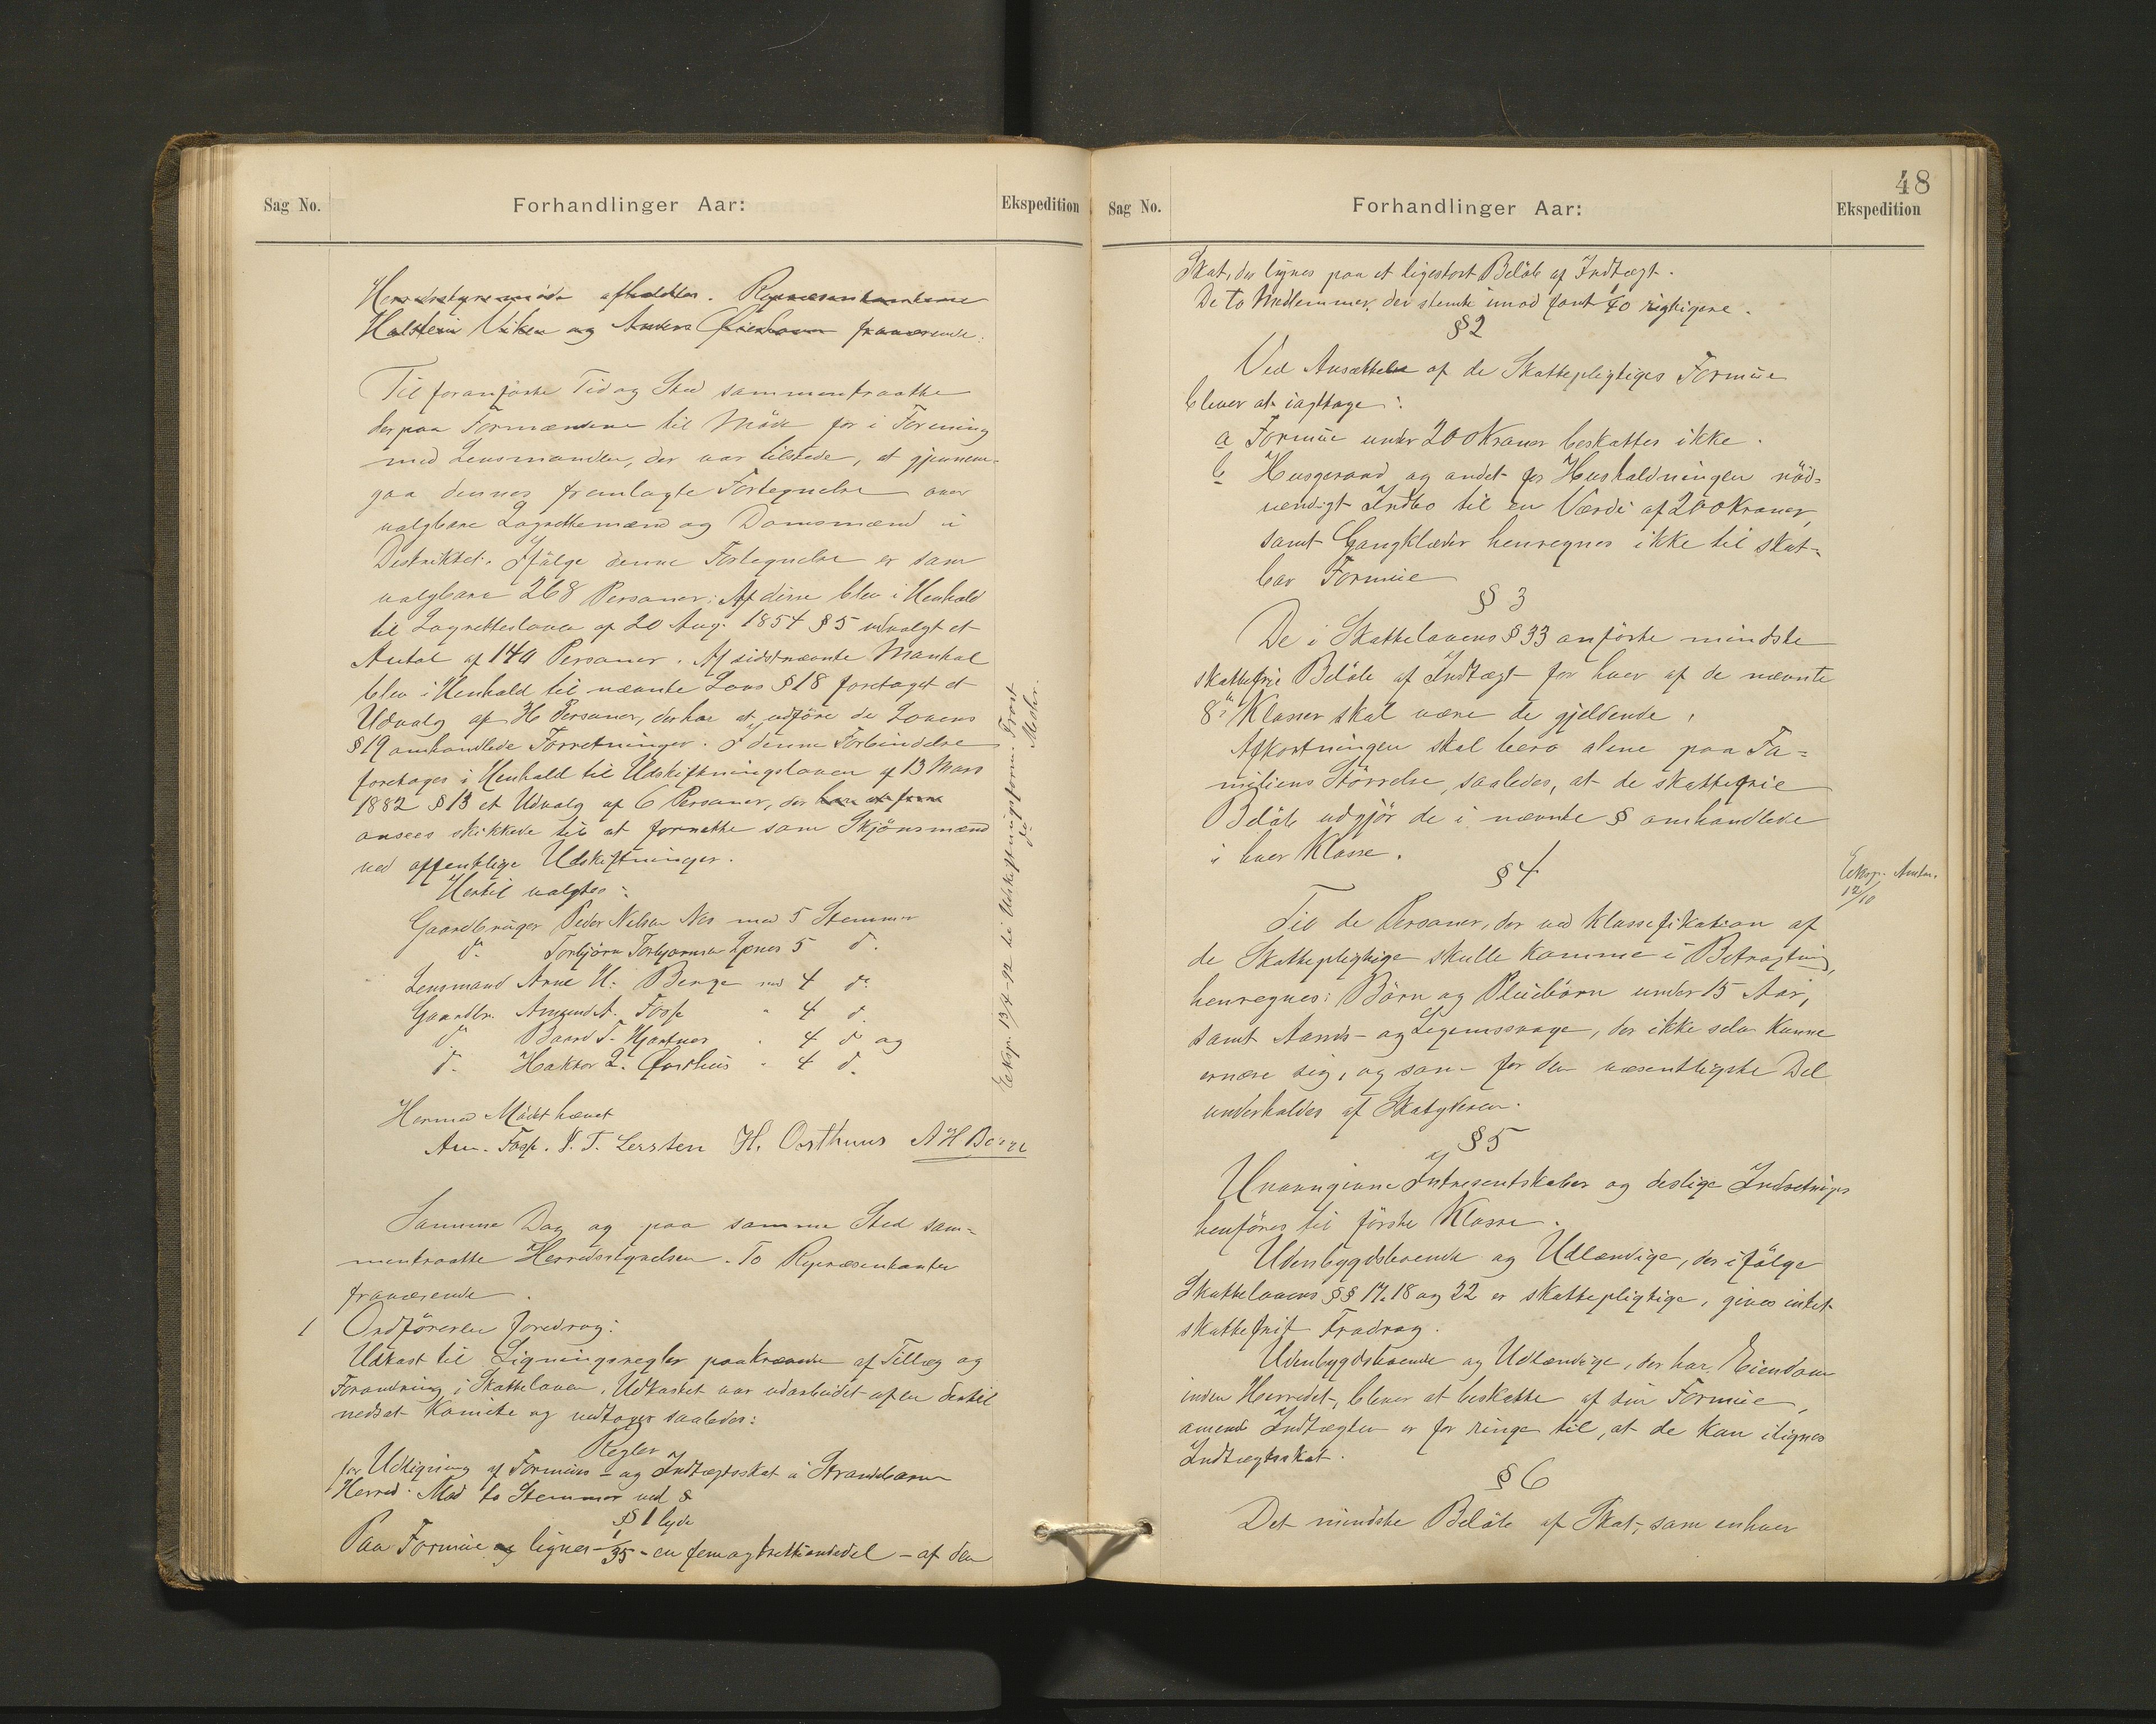 Sag No.
Forhandlinger Aar:
Ekspedition
Herredsstyremøde afholdtes. Repræsentanterne
Halstein Viken og Anders fraværende.
Til foranførte Tid og Sted sammentraadte
derpaa Formændene til Møde for i Forening
med Lensmanden, der var tilstede, at gjennem-
gaa dennes fremlagte Fortegnelse over
valgbare Lagrettemænd og Domsmænd i
Distriktet. Ifølge denne Fortegnelse er som
valgbare 268 Personer. Af disse blev i Henhold
til Lagretteloven af 20 Aug. 1854 § 5 udvalgt et
Antal af 140 Personer. Af sidstnævnte Mantal
blev i Henhold til nævnte Lovs § 18 foretaget et
Udvalg af Personer, der har at udføre de Lovens
§ 19 omhandlede Forretninger. I denne Forbindelse
foretages i Henhold til Udskiftningsloven af 13 Mars
1882 § 13 et Udvalg af 6 Personer, der har at
ansees skikkede til at forrette som Skjönsmænd
ved offentlige Udskiftninger.
Hertil valgtes:
Gaardbruger Peder Nilsen Nes med 5 Stemmer
do. Torbjørn Torbjørnsen 5 do.
Lensmand Arne H. Berge med 4 do.
Gaardbr. Amund A. Fosse " 4 do.
do. Baard T. Hjartnes " 4 do og
do. Haktor L. Østhus " 4 do.
Hermed Mødet hævet
Am. Fosse. T. H. Oosthuus A H Berge
Eksp. 13/4-92 til Udskiftningsform. Frost
do Mohr.
Samme Dag og paa samme Sted sam-
mentraadte Herredsstyrelsen. To Repræsentanter
fraværende.
1 Ordføreren foredrog:
Udkast til Ligningsregler paakrævede af Tillæg og
Forandring i Skatteloven. Udkastet var udarbeidet af en dertil
nedsat Komite og vedtoges saaledes:
Regler
for Udligning af Formues- og Indtægtsskat i Strandebarm
Herred. Mod to Stemmer ved §
§ 1 lyde
Paa Formue og lignes 1/35 - en femogtrettiendedel - af den
48
Sag No.
Forhandlinger Aar:
Ekspedition
Skat, der lignes paa et ligestort Beløb af Indtægt.
De to Medlemmer, der stemte imod fant 1/40 rigtigere.
§ 2
Ved Ansættelse af de Skattepligtiges Formue
bliver at iagttage:
a Formue under 200 Kroner beskattes ikke.
b Husgeraad og andet for Husholdningen nöd-
vendigt Indbo til en Værdi af 200 Kroner,
samt Gangklæder henregnes ikke til skat-
bar Formue
§ 3
De i Skattelovens § 33 anførte mindste
skattefrie Beløb af Indtægt for hver af de nævnte
8te Klasser skal være de gjeldende,
Afkortningen skal bero alene paa Fa-
miliens Størrelse, saaledes, at de skattefrie
Beløb udgjør de i nævnte § omhandlede
i hver Klasse.
§ 4
Eksp. Amtm.
12/10
Til de Personer, der ved Klassifikation af
de Skattepligtige skulle komme i Betragtning,
henregnes: Børn og Pleiebørn under 15 Aar,
samt Aands- og Legemssvage, der ikke selv kunne
ernære sig, og som for den væsentligste Del
underholdes af Skatyderen.
§ 5
Unavngivne Interesentskaber og deslige Indretninger
henføres til første Klasse.
Udenbygdsboende og Udlændige, der ifølge
Skattelovens §§ 17. 18 og 22 er skattepligtige, gives intet
skattefrit Fradrag.
Udenbygdsboende og Udlændige, der har Eiendom
inden Herredet, bliver at beskatte af sin Formue,
omend Indtægten er for ringe til, at de kan ilignes
Indtægtsskat.
§ 6
Det mindste Beløb af Skat, som enhver